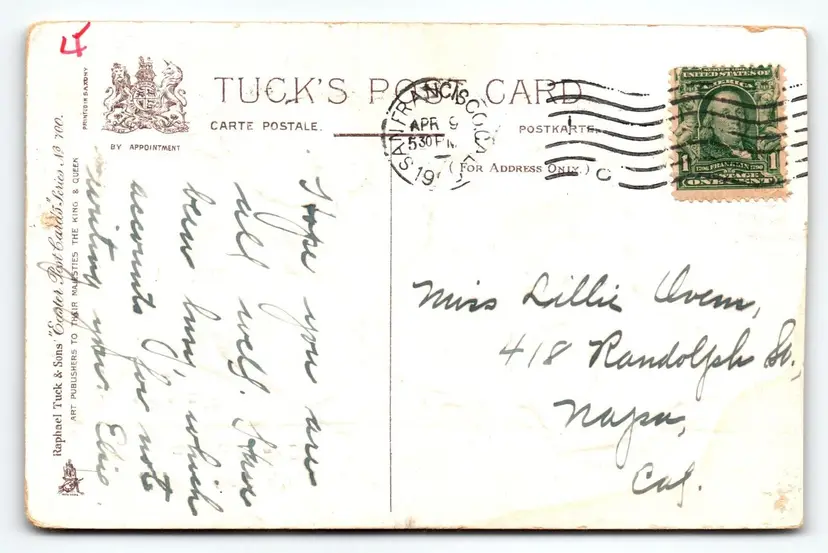 4
PRINTED IN SAXONY
BY APPOINTMENT
TUCK'S POST CARD
CARTE POSTALE.
POSTKARTE.
(FOR ADDRESS ONLY.)
SAN FRANCISCO, CAL.
APR 9
530 PM
19
SERIES 1902
UNITED STATES OF
AMERICA
1 FRANKLIN 1
POSTAGE
ONE CENT
Raphael Tuck & Sons' "Easter" Post Cards Series No 700.
ART PUBLISHERS TO THEIR MAJESTIES THE KING & QUEEN
Hope you are
all well. Have
been busy which
accounts for not
writing you. Elsie.
Miss Lillie Oven,
418 Randolph St.,
Napa,
Cal.